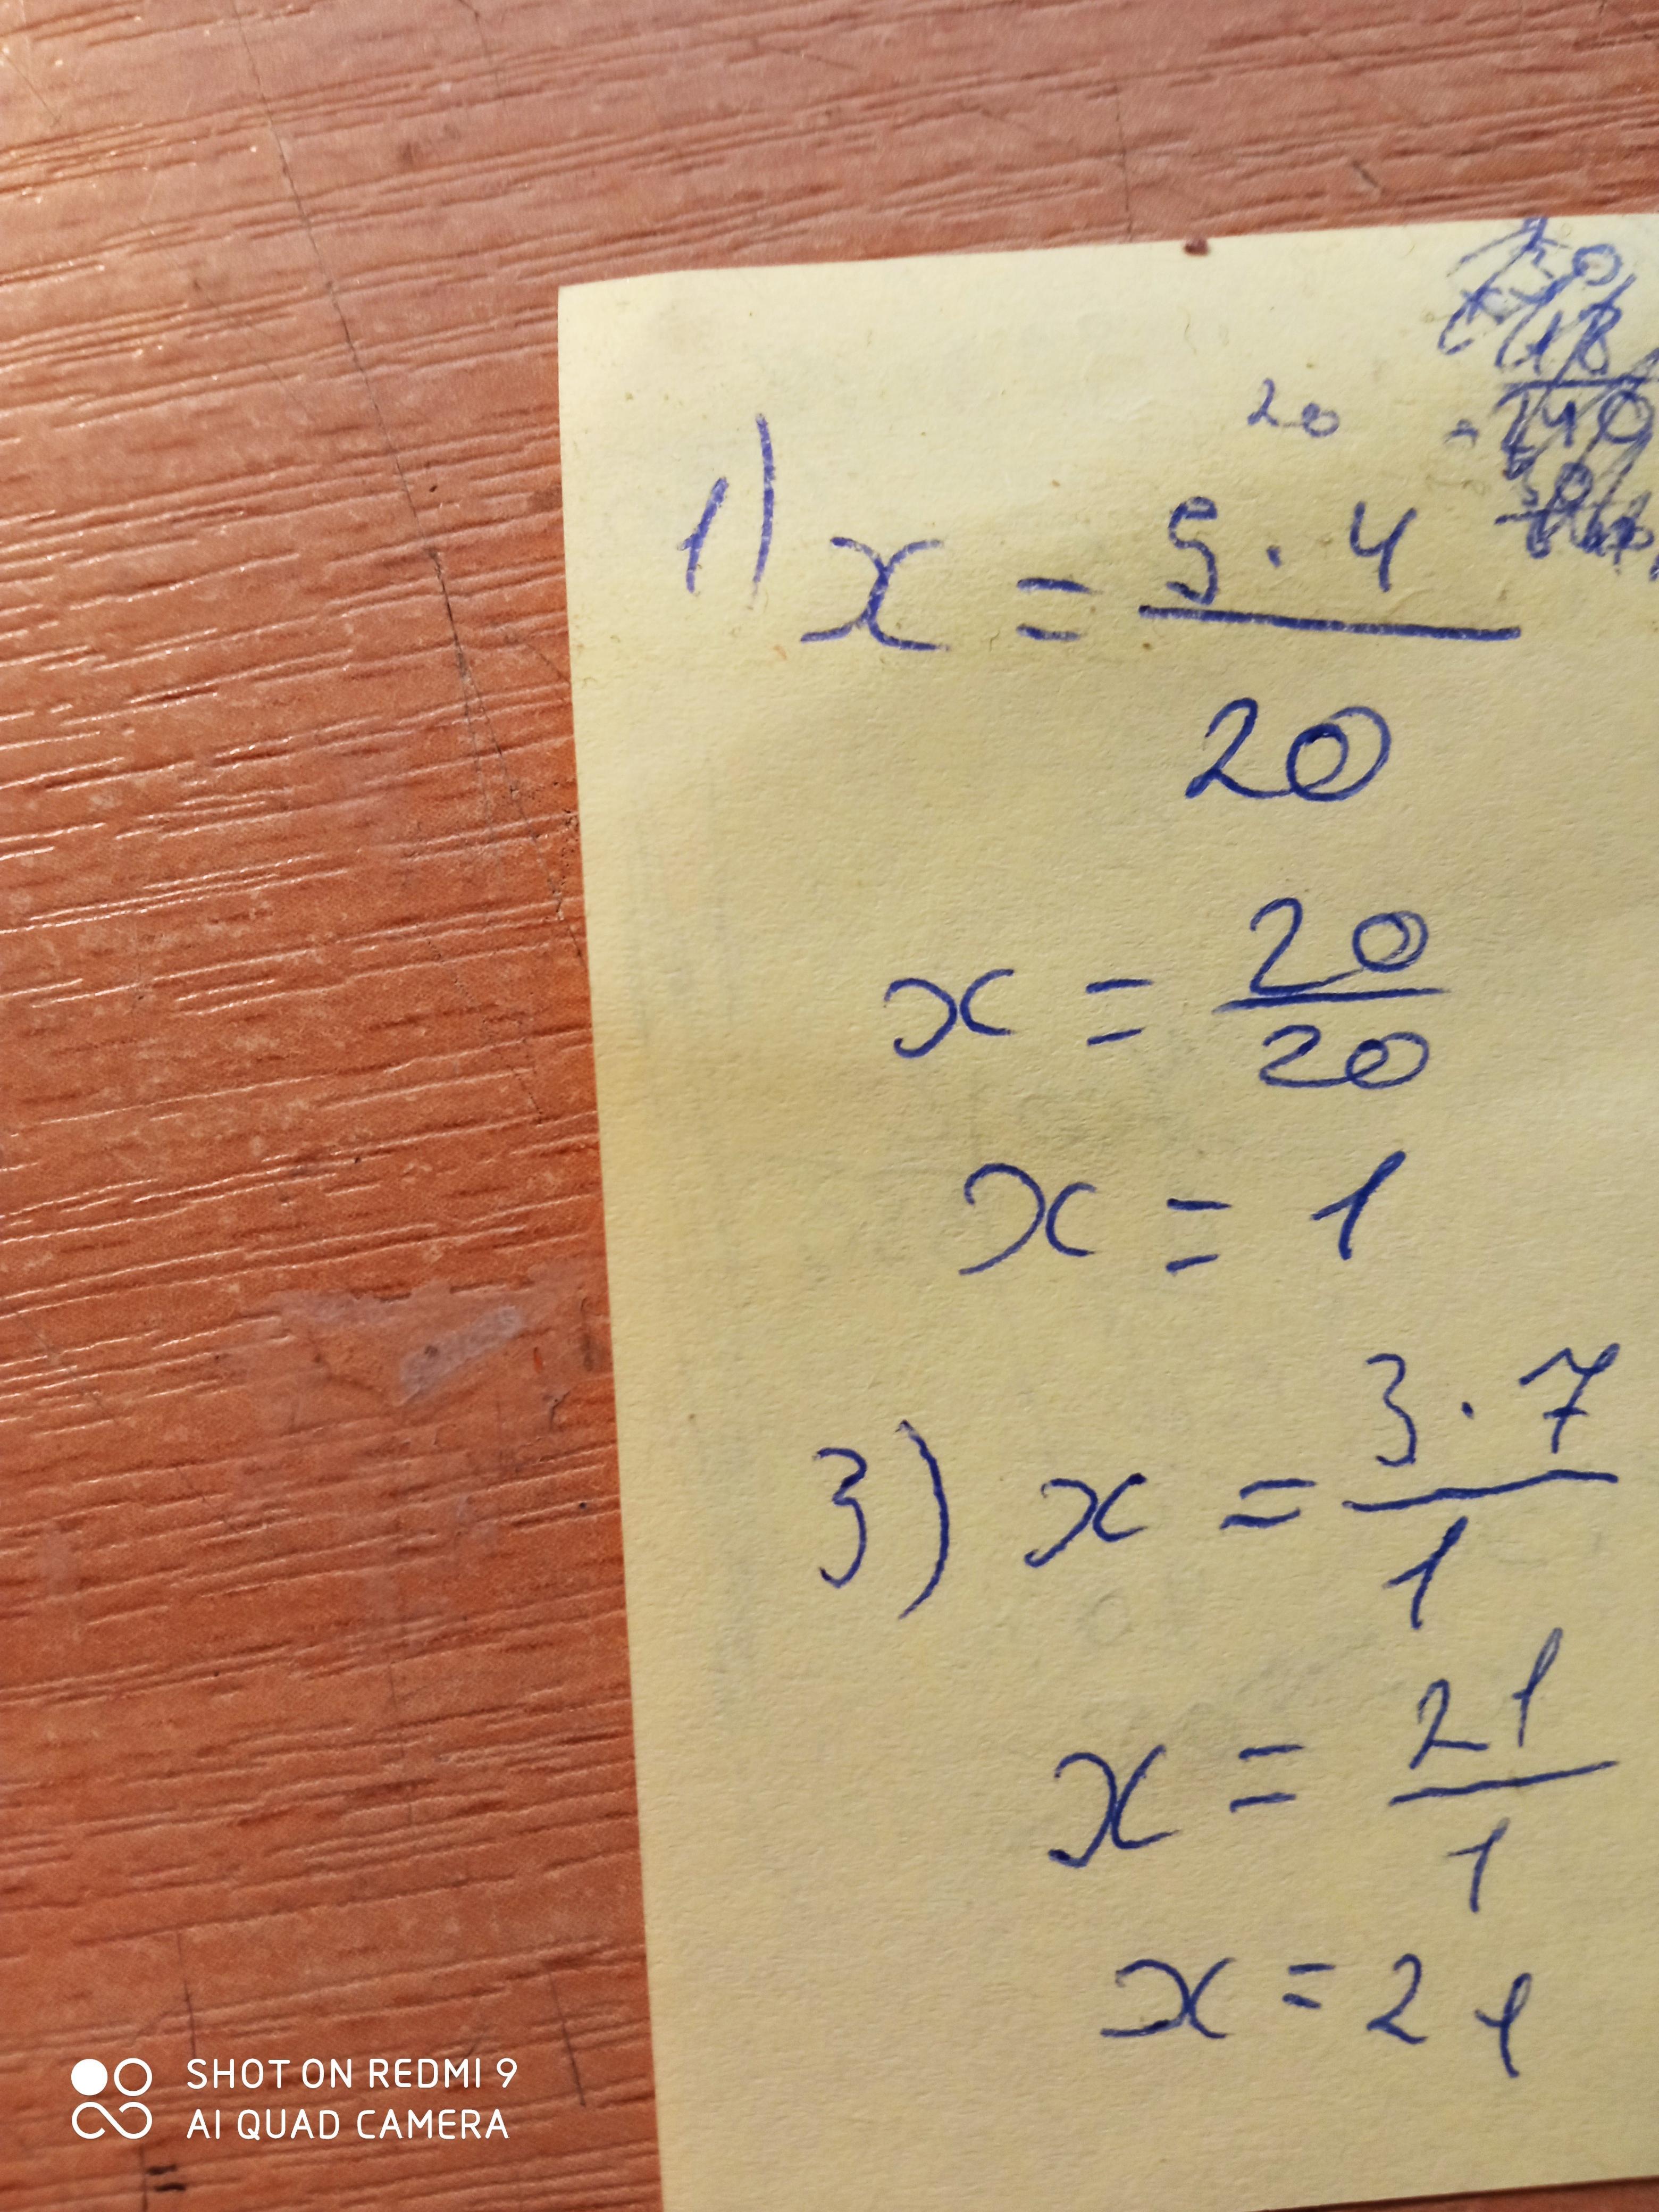 20
1) x = 5 · 4 / 20
x = 20 / 20
x = 1
3) x = 3 · 7 / 1
x = 21 / 1
x = 21
SHOT ON REDMI 9
AI QUAD CAMERA